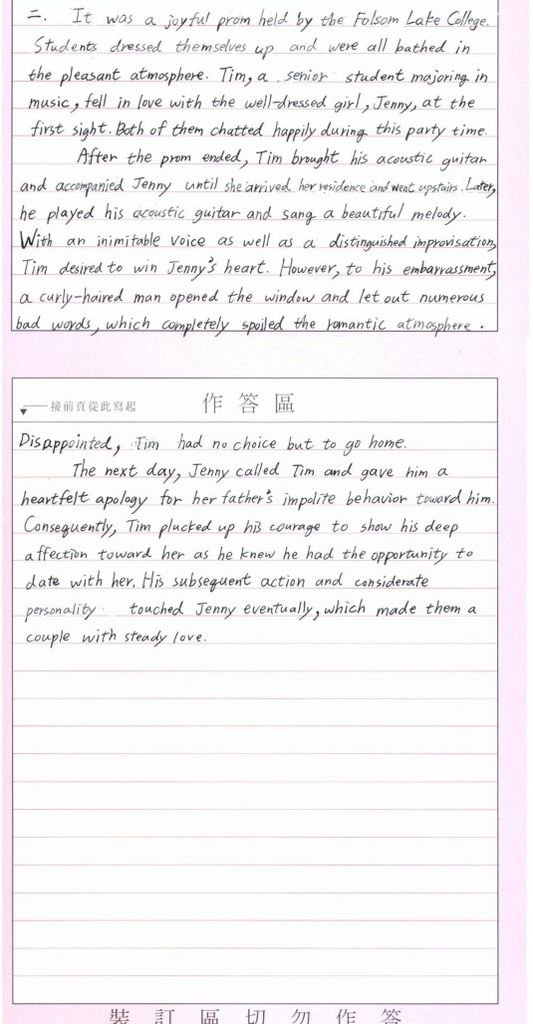 二. It was a joyful prom held by the Folsom Lake College.
Students dressed themselves up and were all bathed in
the pleasant atmosphere. Tim, a senior student majoring in
music, fell in love with the well-dressed girl, Jenny, at the
first sight. Both of them chatted happily during this party time.
After the prom ended, Tim brought his acoustic guitar
and accompanied Jenny until she arrived her residence and went upstairs. Later,
he played his acoustic guitar and sang a beautiful melody.
With an inimitable voice as well as a distinguished improvisation,
Tim desired to win Jenny's heart. However, to his embarrassment,
a curly-haired man opened the window and let out numerous
bad words, which completely spoiled the romantic atmosphere.
接前頁從此寫起
作答區
Disappointed, Tim had no choice but to go home.
The next day, Jenny called Tim and gave him a
heartfelt apology for her father's impolite behavior toward him.
Consequently, Tim plucked up his courage to show his deep
affection toward her as he knew he had the opportunity to
date with her. His subsequent action and considerate
personality touched Jenny eventually, which made them a
couple with steady love.
裝訂區切勿作答